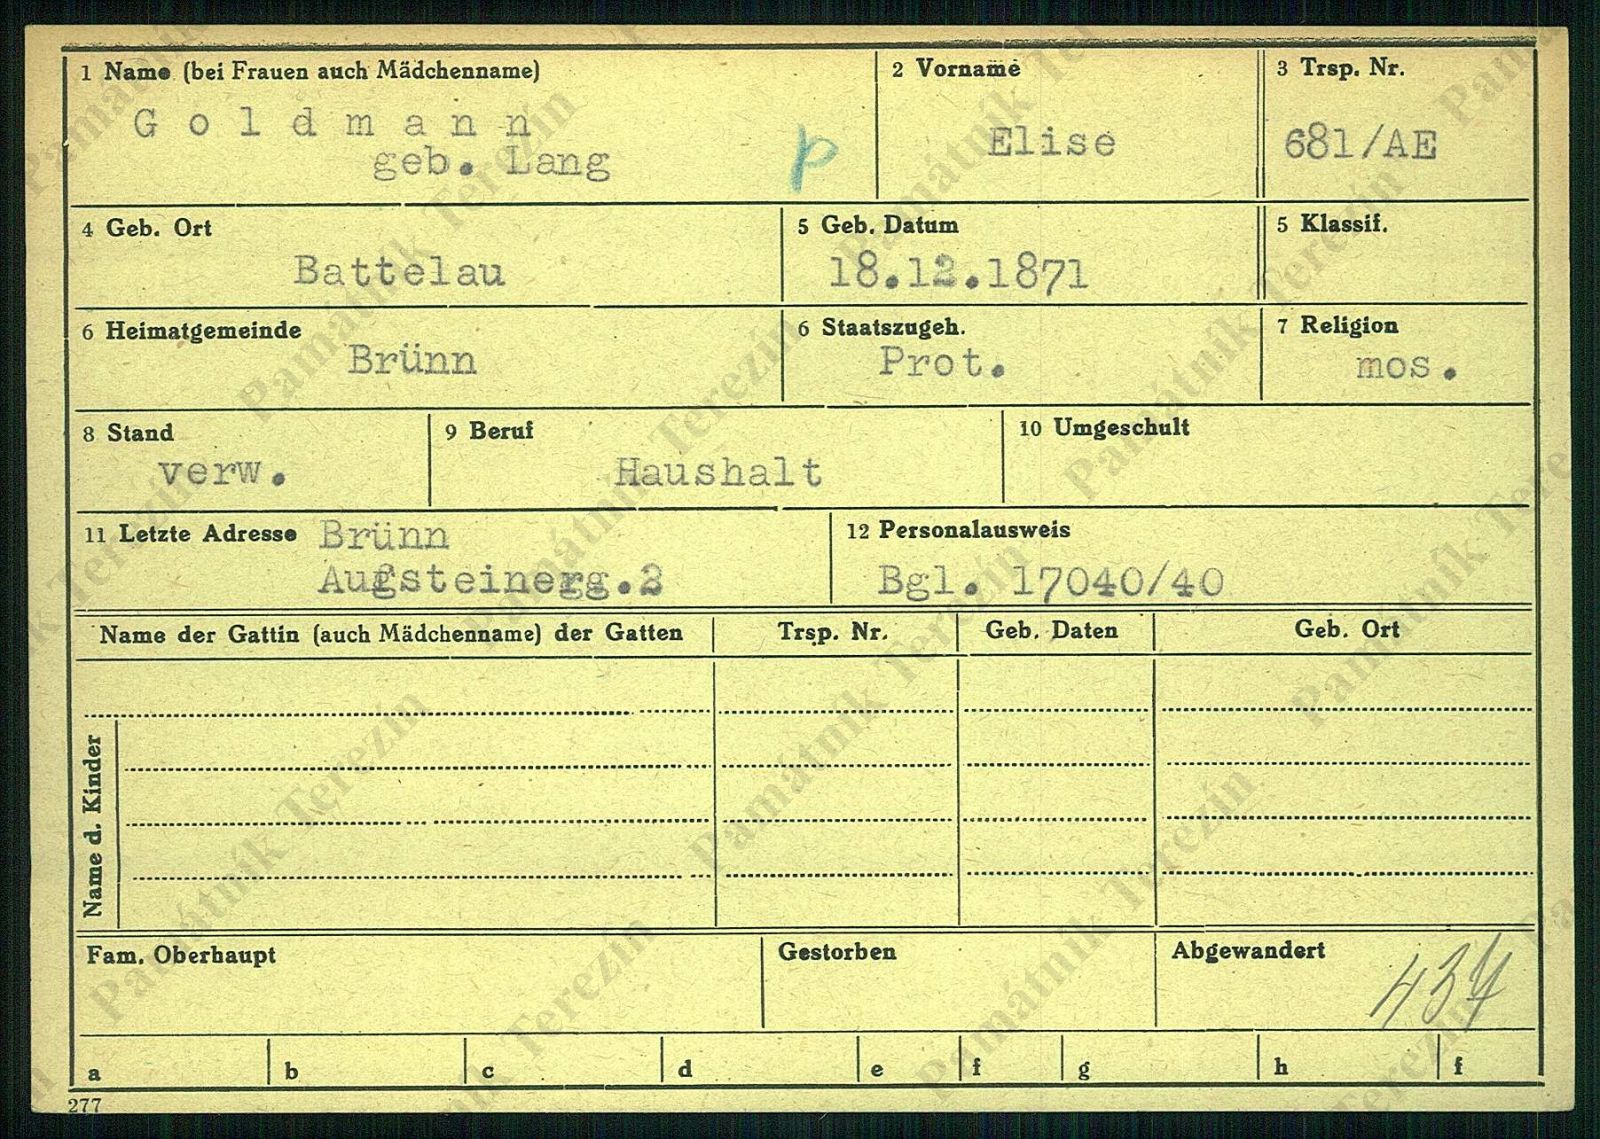 1 Name (bei Frauen auch Mädchenname)
Goldmann
geb. Lang
p
2 Vorname
Elise
3 Trsp. Nr.
681/AE
4 Geb. Ort
Battelau
5 Geb. Datum
18.12.1871
5 Klassif.
6 Heimatgemeinde
Brünn
6 Staatszugeh.
Prot.
7 Religion
mos.
8 Stand
verw.
9 Beruf
Haushalt
10 Umgeschult
11 Letzte Adresse Brünn
Augsteinerg.2
12 Personalausweis
Bgl. 17040/40
Name der Gattin (auch Mädchenname) der Gatten
Trsp. Nr.
Geb. Daten
Geb. Ort
Name d. Kinder
Fam. Oberhaupt
Gestorben
Abgewandert
437
a b c d e f g h f
277
Památník Terezín